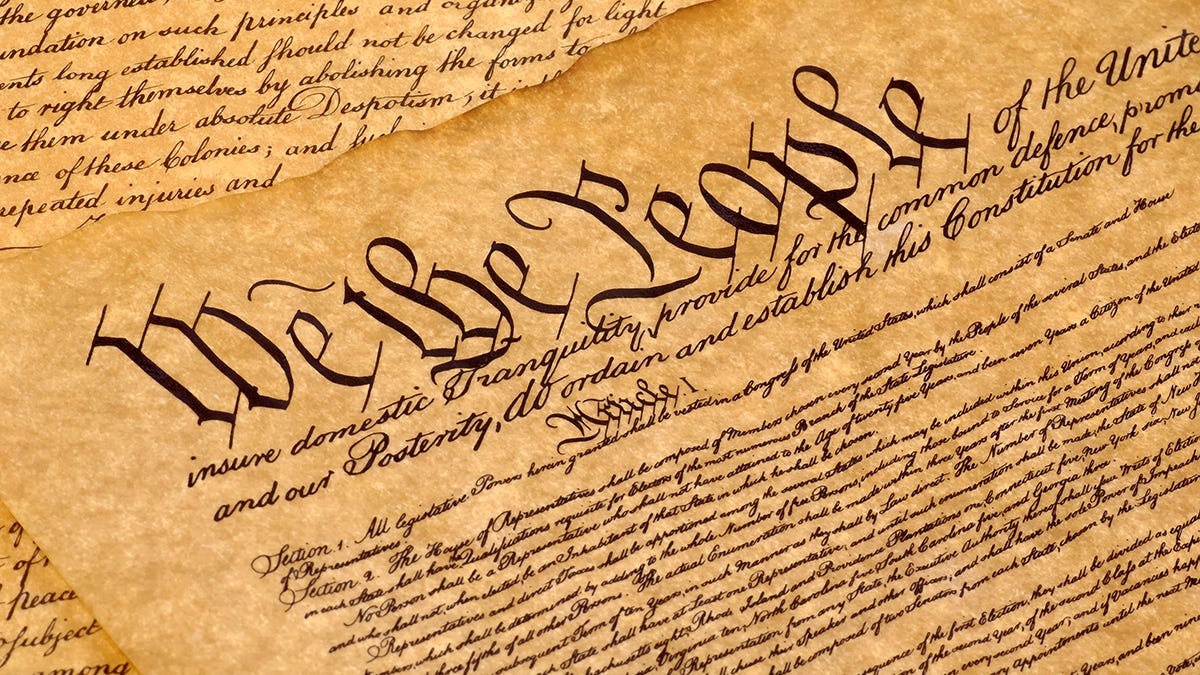 the governed,
undation on such principles and organiz
ents long established should not be changed for light
to right themselves by abolishing the forms to
e them under absolute Despotism, it is th
nce of these Colonies; and such
repeated injuries and
We the People
of the Unite
insure domestic Tranquility, provide for the common defence, promo
and our Posterity, do ordain and establish this Constitution for the
Article. I.
Section. 1. All legislative Powers herein granted shall be vested in a Congress of the United States, which shall consist of a Senate and House
of Representatives.
Section. 2. The House of Representatives shall be composed of Members chosen every second Year by the People of the several States, and the Elect
in each State shall have the Qualifications requisite for Electors of the most numerous Branch of the State Legislature.
No Person shall be a Representative who shall not have attained to the Age of twenty five Years, and been seven Years a Citizen of the United
and who shall not, when elected, be an Inhabitant of that State in which he shall be chosen.
Representatives and direct Taxes shall be apportioned among the several States which may be included within this Union, according to their
which shall be determined by adding to the whole Number of free Persons, including those bound to Service for a Term of Years, and
three fifths of all other Persons. The actual Enumeration shall be made within three Years after the first Meeting of the Congress
subsequent Term of ten Years, in such Manner as they shall by Law direct. The Number of Representatives shall
State shall have at Least one Representative; and until such enumeration shall be made, the State of New
eight, Rhode Island and Providence Plantations one, Connecticut five, New York six, New
Virginia ten, North Carolina five, South Carolina five, and Georgia three.
Representation from any State, the Executive Authority thereof shall issue Writs of Elect
shall chuse their Speaker and other Officers; and shall have the sole Power of Impeach
shall be composed of two Senators from each State, chosen by the Legislat
sequence of the first Election, they shall be divided as equa
of the second Year, of the second Class at the Exp
every second Year; and if Vacancies happ
Appointments until the next M
Years, and been nin
peace
subject
among